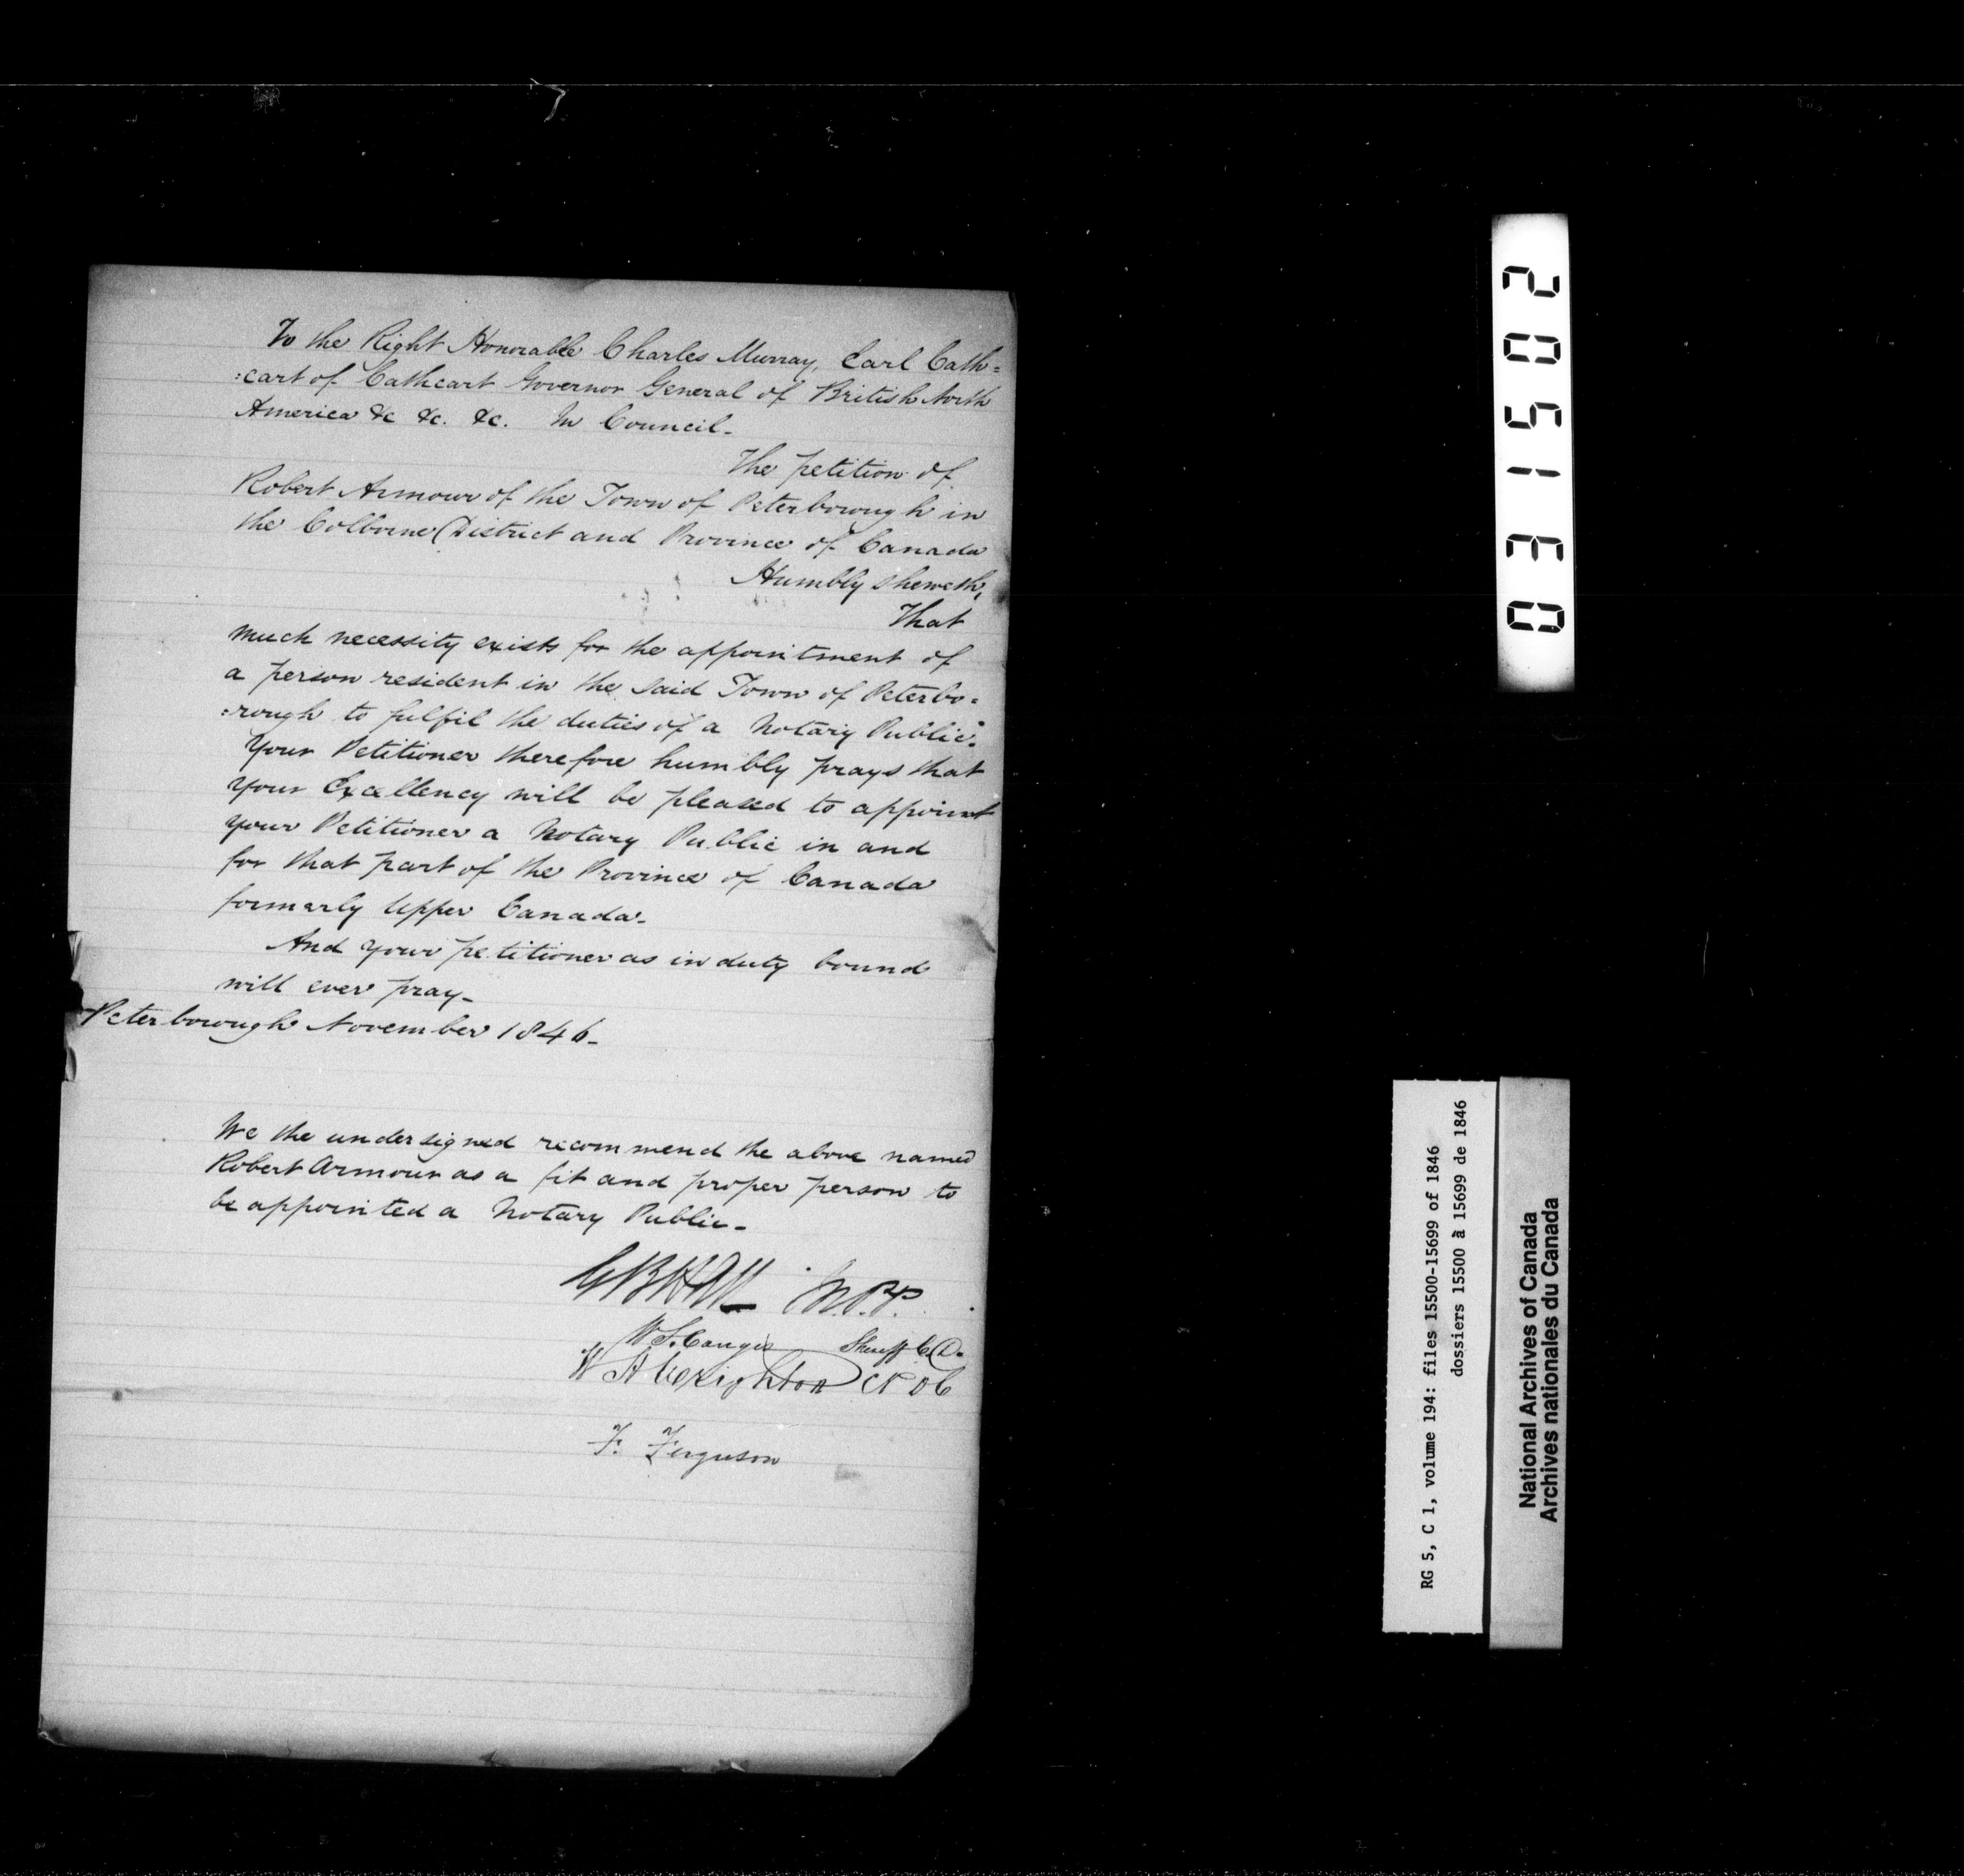 To the Right Honorable Charles Murray, Earl Cath=
:cart of Cathcart Governor General of British North
America &c &c. &c. In Council-
The petition of
Robert Armour of the Town of Peterborough in
the Colborne District and Province of Canada
Humbly sheweth,
That
much necessity exists for the appointment of
a person resident in the said Town of Peterbo=
:rough to fulfil the duties of a Notary Public.
Your Petitioner therefore humbly prays that
your Excellency will be pleased to appoint
your Petitioner a Notary Public in and
for that part of the Province of Canada
formerly Upper Canada-
And your petitioner as in duty bound
will ever pray-
Peterborough November 1846-
We the undersigned recommend the above named
Robert Armour as a fit and proper person to
be appointed a Notary Public-
G B Hall M.P.P.
W. S. Conger Sheriff C.D.
W H Wrighton
F. Ferguson
205130
RG 5, C 1, volume 194: files 15500-15699 of 1846
dossiers 15500 à 15699 de 1846
National Archives of Canada
Archives nationales du Canada